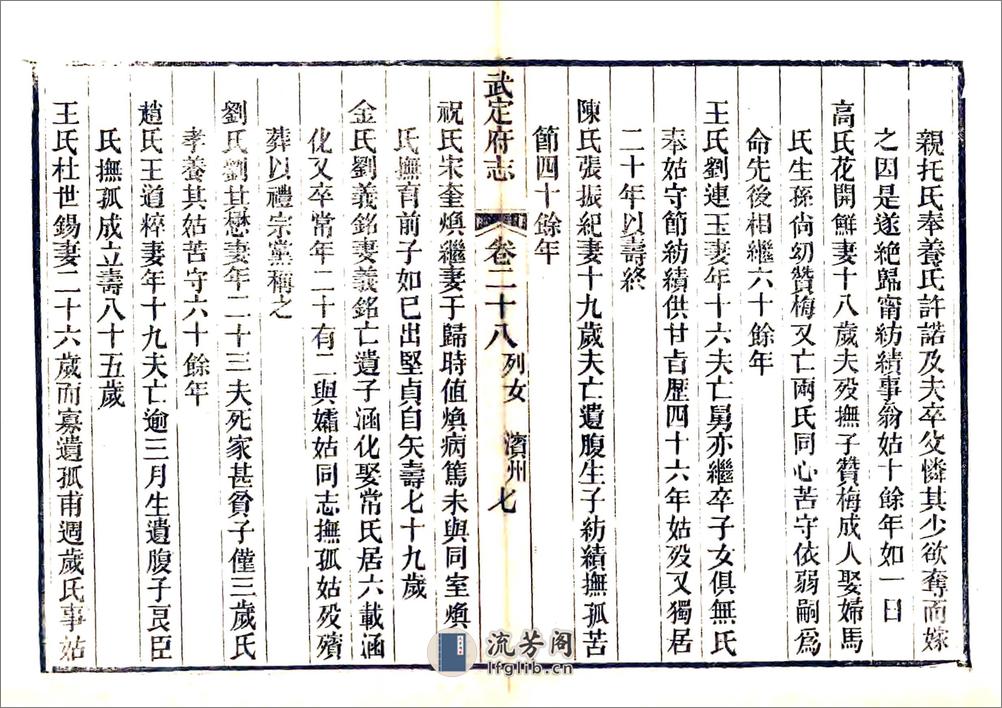 親托氏奉養氏許諾及夫卒父憐其少欲奪而嫁
之因是遂絕歸甯紡績事翁姑十餘年如一日
高氏花開鮮妻十八歲夫歿撫子贊梅成人娶婦馬
氏生孫尙幼贊梅又亡兩氏同心苦守依弱嗣爲
命先後相繼六十餘年
王氏劉連玉妻年十六夫亡舅亦繼卒子女俱無氏
奉姑守節紡績供甘旨歷四十六年姑歿又獨居
二十年以壽終
陳氏張振紀妻十九歲夫亡遺腹生子紡績撫孤苦
節四十餘年
武定府志
卷二十八
列女
濱州
七
祝氏宋奎煥繼妻于歸時値煥病篤未與同室煥
氏撫育前子如已出堅貞自矢壽七十九歲
金氏劉義銘妻義銘亡遺子涵化娶常氏居六載涵
化又卒常年二十有二與孀姑同志撫孤姑歿殯
葬以禮宗黨稱之
劉氏劉其懋妻年二十三夫死家甚貧子僅三歲氏
孝養其姑苦守六十餘年
趙氏王道粹妻年十九夫亡逾三月生遺腹子良臣
氏撫孤成立壽八十五歲
王氏杜世錫妻二十六歲而寡遺孤甫週歲氏事姑
流芳阁
lfglib.cn